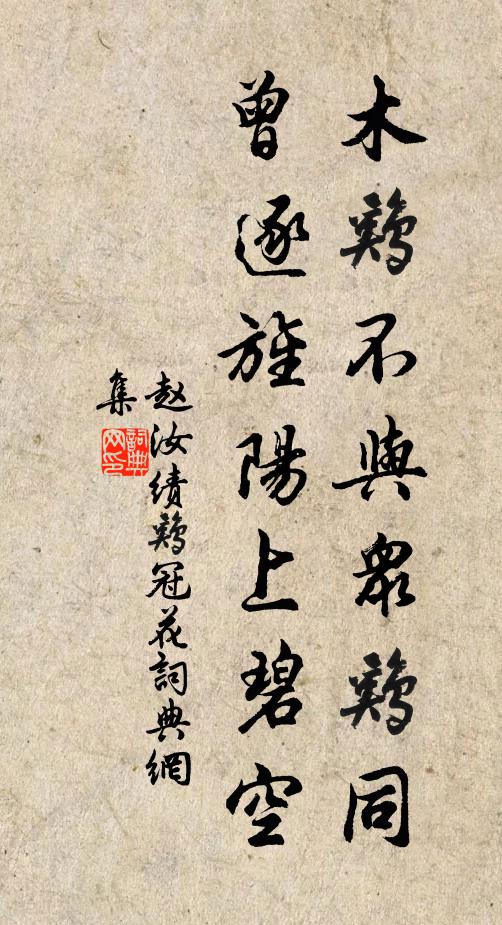 木鷄不與衆鷄同
曾逐旌陽上碧空
赵汝績鷄冠花詞典網
集
詞典
网印